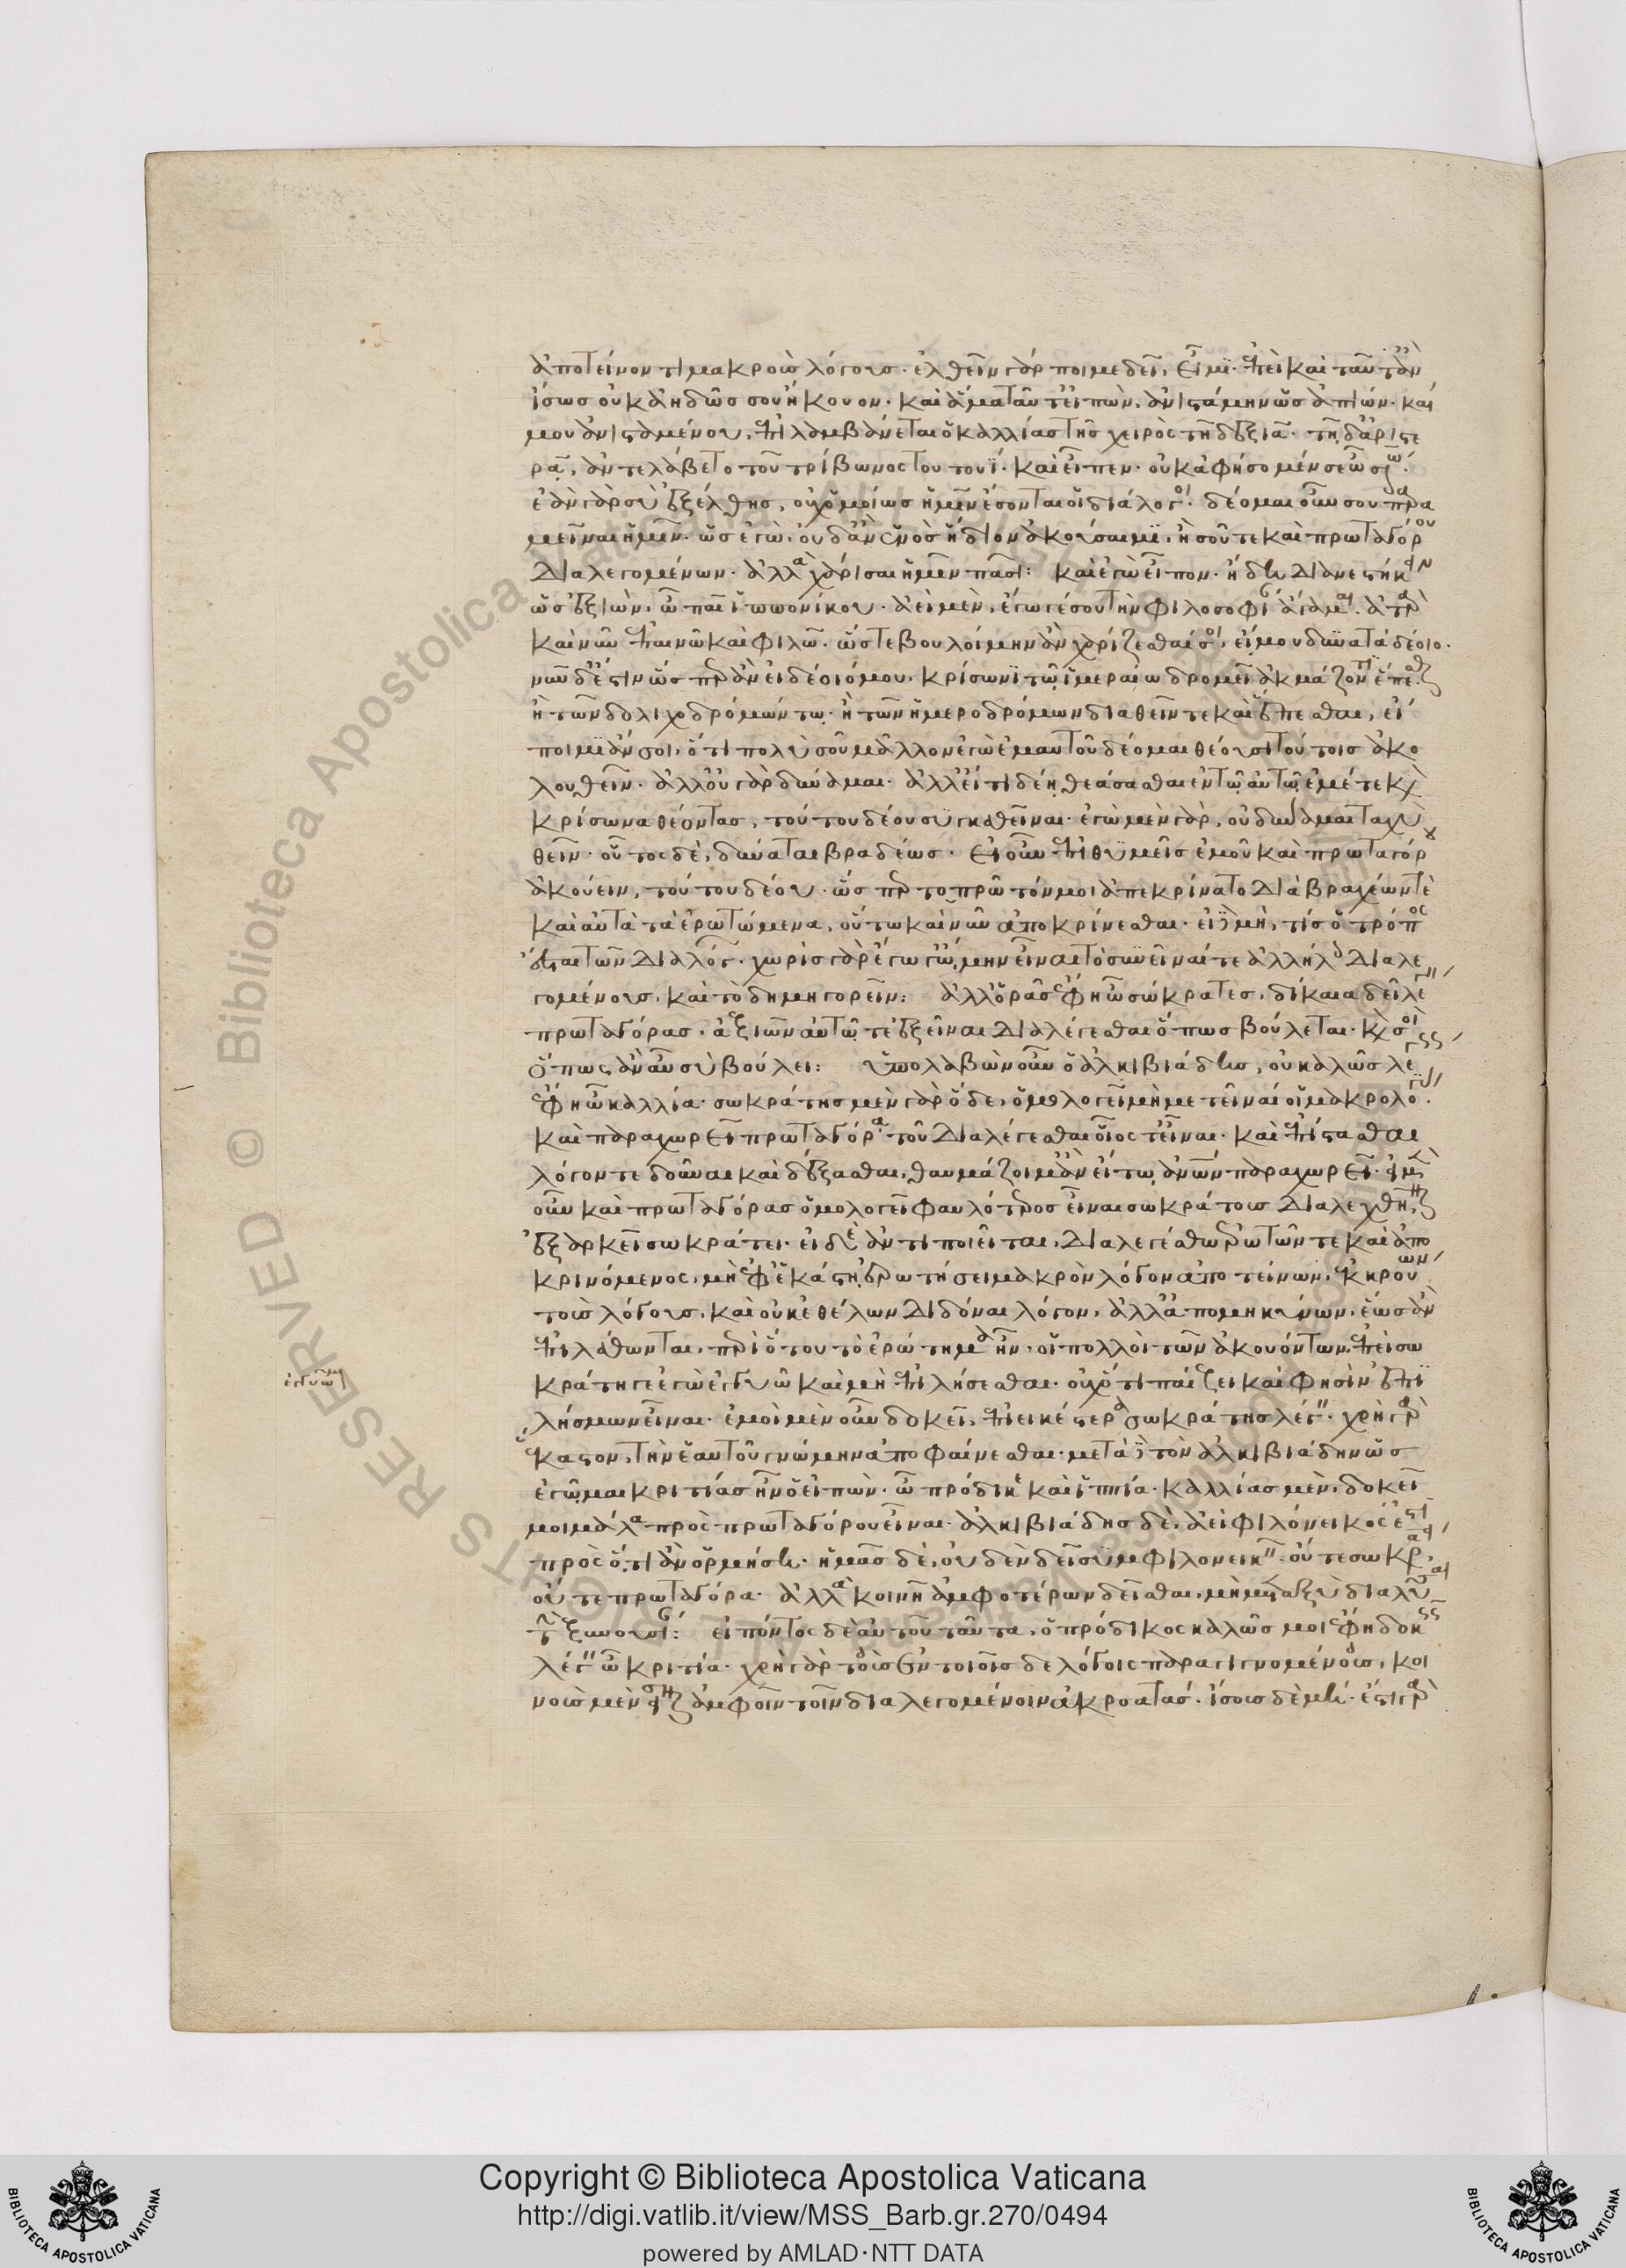 ἀποτείνοντι μακροὺς λόγους. ἐλθεῖν γάρ ποι με δεῖ, εἶμι. ἐπεὶ καὶ ταῦτ' ἂν
ἴσως οὐκ ἀηδῶς σου ἤκουον. καὶ ἅμα ταῦτ' εἰπὼν, ἀνιστάμην ὡς ἀπιών. καί
μου ἀνισταμένου, ἐπιλαμβάνεται ὁ καλλίας τῆς χειρὸς τῇ δεξιᾷ. τῇ δ' ἀριστε
ρᾷ, ἀντελάβετο τοῦ τρίβωνος τουτουΐ. καὶ εἶπεν. οὐκ ἀφήσομέν σε ὦ σω
ἐὰν γὰρ σὺ ἐξέλθῃς, οὐχ ὁμοίως ἡμῖν ἔσονται οἱ διάλογοι. δέομαι οὖν σου παρα
μεῖναι ἡμῖν. ὡς ἐγὼ, οὐδ' ἂν ἑνὸς ἥδιον ἀκούσαιμι, ἢ σοῦ τε καὶ πρωταγόρου
διαλεγομένων. ἀλλὰ χάρισαι ἡμῖν πᾶσι: καὶ ἐγὼ εἶπον. ἤδη δὲ ἀνεστήκειν
ὡς ἐξιών. ὦ παῖ ἱππονίκου. ἀεὶ μὲν, ἔγωγέ σου τὴν φιλοσοφίαν ἄγαμαι. ἀτὰρ
καὶ νῦν ἐπαινῶ καὶ φιλῶ. ὥστε βουλοίμην ἂν χαρίζεσθαί σοι, εἴ μου δυνατὰ δέοιο.
νῦν δ' ἐστὶν ὥσπερ ἂν εἰ δέοιό μου. κρίσωνι τῷ ἱμεραίῳ δρομεῖ ἀκμάζοντι ἕπεσθαι
ἢ τῶν δολιχοδρόμων τῳ. ἢ τῶν ἡμεροδρόμων διαθεῖν τε καὶ ἕπεσθαι, εἴ
ποιμι ἄν σοι, ὅτι πολὺ σοῦ μᾶλλον ἐγὼ ἐμαυτοῦ δέομαι θέουσι τούτοις ἀκο
λουθεῖν. ἀλλ' οὐ γὰρ δύναμαι. ἀλλ' εἴ τι δέῃ θεάσασθαι ἐν τῷ αὐτῷ ἐμέ τε καὶ
κρίσωνα θέοντας, τούτου δέου συγκαθεῖναι. ἐγὼ μὲν γὰρ, οὐ δύναμαι ταχὺ
θεῖν. οὗτος δὲ, δύναται βραδέως. εἰ οὖν ἐπιθυμεῖς ἐμοῦ καὶ πρωταγόρου
ἀκούειν, τούτου δέου. ὥσπερ τὸ πρῶτόν μοι ἀπεκρίνατο διὰ βραχέων τὲ
καὶ αὐτὰ τὰ ἐρωτώμενα, οὕτω καὶ νῦν ἀποκρίνεσθαι. εἰ δὲ μὴ, τίς ὁ τρόπος
ἔσται τῶν διαλόγων. χωρὶς γὰρ ἔγωγ' ᾤμην εἶναι τὸ συνεῖναί τε ἀλλήλοις διαλε
γομένους, καὶ τὸ δημηγορεῖν: ἀλλ' ὁρᾷς ἔφη ὦ σώκρατες, δίκαια δεῖ λέγειν
πρωταγόρας. ἀξιῶν αὑτῷ τε ἐξεῖναι διαλέγεσθαι ὅπως βούλεται. καὶ σοὶ
ὅπως ἂν αὖ σὺ βούλει: ὑπολαβὼν οὖν ὁ ἀλκιβιάδης, οὐ καλῶς λέγεις
ἔφη ὦ καλλία. σωκράτης μὲν γὰρ ὅδε, ὁμολογεῖ μὴ μετεῖναί οἱ μακρολογίας.
καὶ παραχωρεῖ πρωταγόρᾳ. τοῦ διαλέγεσθαι οἷός τ' εἶναι. καὶ ἐπίστασθαι
λόγον τε δοῦναι καὶ δέξασθαι, θαυμάζοιμ' ἂν εἴ τῳ ἀνθρώπων παραχωρεῖ. εἰ μὲν
οὖν καὶ πρωταγόρας ὁμολογεῖ φαυλότερος εἶναι σωκράτους διαλεχθῆναι,
ἐξαρκεῖ σωκράτει. εἰ δὲ ἀντιποιεῖται, διαλεγέσθω ἐρωτῶν τε καὶ ἀπο
κρινόμενος, μὴ ἐφ' ἑκάστῃ ἐρωτήσει μακρὸν λόγον ἀποτείνων, ἐκκρούων
τοὺς λόγους, καὶ οὐκ ἐθέλων διδόναι λόγον, ἀλλ' ἀπομηκύνων. ἕως ἂν
ἐπιλάθωνται, περὶ ὅτου τὸ ἐρώτημα ἦν. οἱ πολλοὶ τῶν ἀκουόντων. ἐπεὶ σω
κράτη γε ἐγὼ ἐγγυῶ καὶ μὴ ἐπιλήσεσθαι. οὐχ ὅτι παίζει καὶ φησὶν ἐπι
ἐγγυῶμαι
λήσμων εἶναι. ἐμοὶ μὲν οὖν δοκεῖ, ἐπιεικέστερα σωκράτης λέγειν. χρὴ γὰρ
ἕκαστον, τὴν ἑαυτοῦ γνώμην ἀποφαίνεσθαι. μετὰ δὲ τὸν ἀλκιβιάδην ὡς
ἐγᾦμαι κριτίας ἦν ὁ εἰπών. ὦ πρόδικε καὶ ἱππία. καλλίας μὲν, δοκεῖ
μοι μάλα πρὸς πρωταγόρου εἶναι. ἀλκιβιάδης δὲ, ἀεὶ φιλόνεικός ἐστι
πρὸς ὅ,τι ἂν ὁρμήσῃ. ἡμᾶς δὲ, οὐδὲν δεῖ συμφιλονεικεῖν. οὔτε σωκράτει
οὔτε πρωταγόρα. ἀλλὰ κοινῇ ἀμφοτέρων δεῖσθαι, μὴ μεταξὺ διαλῦσαι
τὴν ξυνουσίαν: εἰπόντος δὲ αὐτοῦ ταῦτα, ὁ πρόδικος καλῶς μοι ἔφη δοκεῖς
λέγειν ὦ κριτία. χρὴ γὰρ τοὺς ἐν τοιοῖσδε λόγοις παραγιγνομένους, κοι
νοὺς μὲν εἶναι ἀμφοῖν τοῖν διαλεγομένοιν ἀκροατάς. ἴσους δὲ μή. ἔστι γὰρ
Copyright © Biblioteca Apostolica Vaticana
http://digi.vatlib.it/view/MSS_Barb.gr.270/0494
powered by AMLAD·NTT DATA
BIBLIOTECA APOSTOLICA VATICANA
BIBLIOTECA APOSTOLICA VATICANA